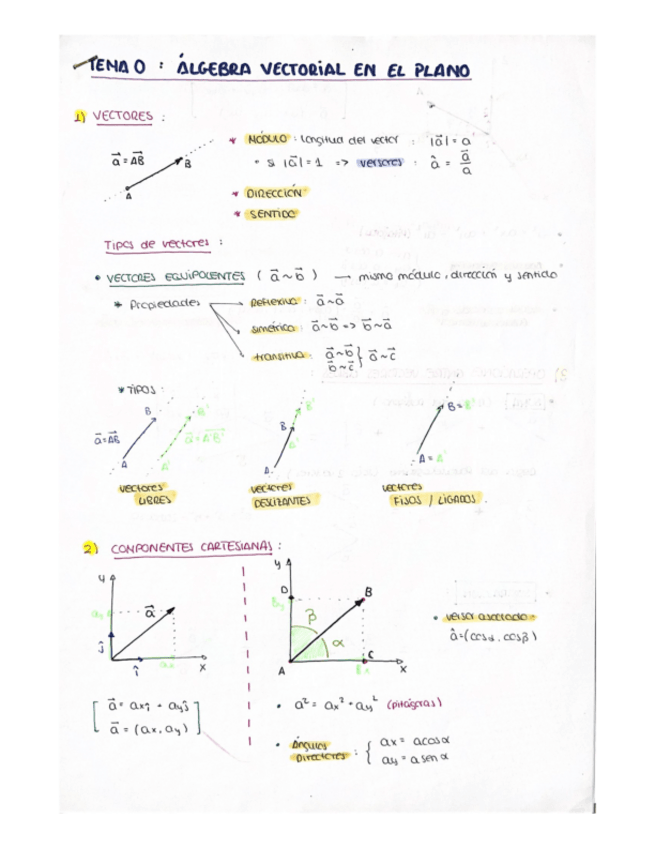 TEMA 0 : ÁLGEBRA VECTORIAL EN EL PLANO
1) VECTORES :
a⃗ = AB⃗
A
B
* MÓDULO : longitud del vector : |a⃗| = a
* si |a⃗| = 1 => versores : â = a⃗/a
* DIRECCIÓN
* SENTIDO
Tipos de vectores :
• VECTORES EQUIPOLENTES ( a⃗ ~ b⃗ ) → mismo módulo, dirección y sentido
* Propiedades
Reflexiva : a⃗ ~ a⃗
simétrica : a⃗ ~ b⃗ => b⃗ ~ a⃗
transitiva : a⃗ ~ b⃗ b⃗ ~ c⃗ } a⃗ ~ c⃗
* TIPOS :
a⃗ = AB⃗
A
B
A'
B'
a⃗ = A'B'⃗
vectores
LIBRES
A
B
A'
B'
vectores
DESLIZANTES
B = B'
A = A'
vectores
FIJOS / LIGADOS .
2) COMPONENTES CARTESIANAS :
y
ay
a⃗
ĵ
î
ax
x
[ a⃗ = axî + ayĵ
a⃗ = (ax, ay) ]
y
D
By
B
β
α
A
C
Bx
x
• versor asociado =
â = (cosα, cosβ)
• a² = ax² + ay² (pitágoras)
• Ángulos
Directores : { ax = a cosα
ay = a senα